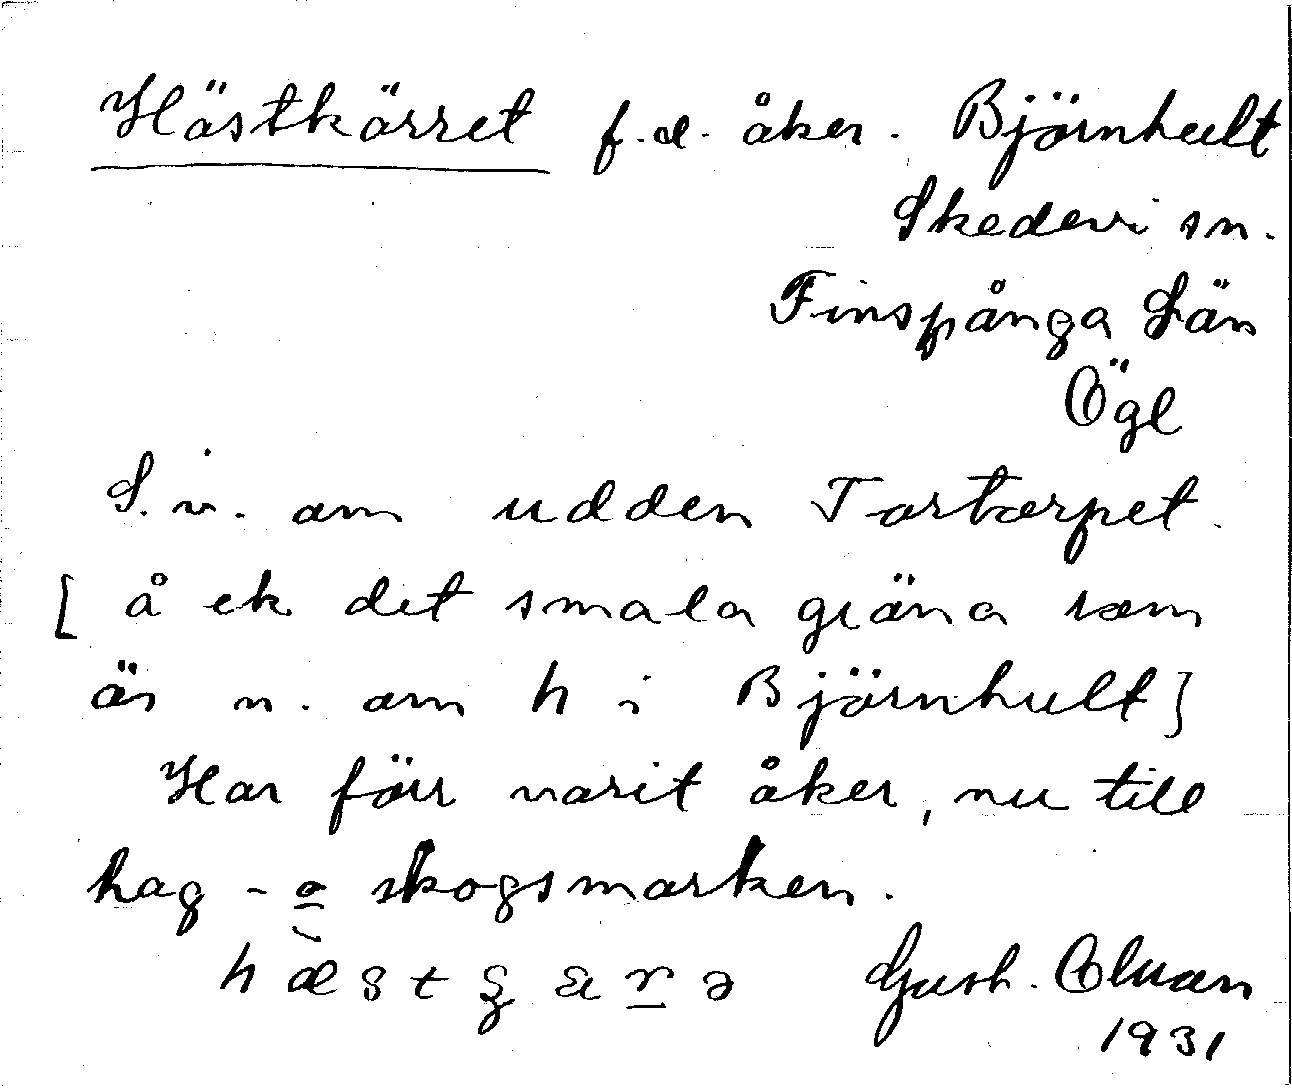 Hästkärret f.d. åker. Björnhult
Skedevi sn.
Finspånga Län
Ögl
S.v. om udden Tortorpet.
[å ek det smala gräna som
är n. om h i Björnhult]
Har förr varit åker, nu till
hag- o skogsmarken.
Gust. Elvan
1931